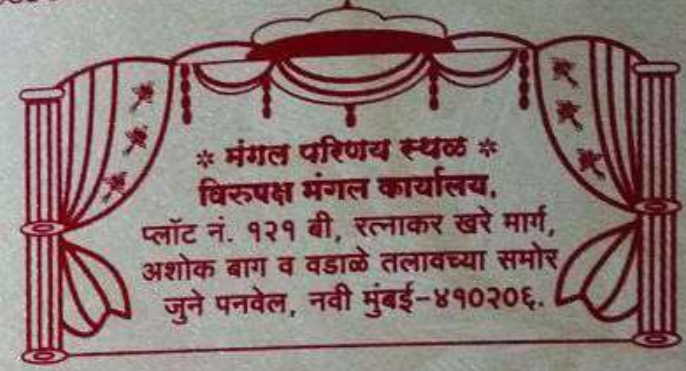 * मंगल परिणय स्थळ *
विरुपक्ष मंगल कार्यालय,
प्लॉट नं. १२१ बी, रत्नाकर खरे मार्ग,
अशोक बाग व वडाळे तलावच्या समोर
जुने पनवेल, नवी मुंबई-४१०२०६.